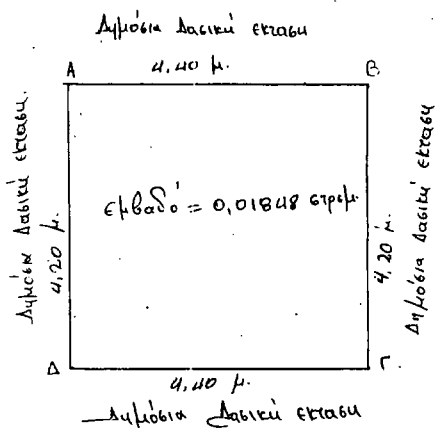 Δημόσια Δασική έκταση
Α
4,40 μ.
Β
Δημόσια Δασική έκταση.
4,20 μ.
εμβαδό = 0,01848 στρεμ.
4,20 μ.
Δημόσια Δασική έκταση
Δ
4,40 μ.
Γ
Δημόσια Δασική έκταση